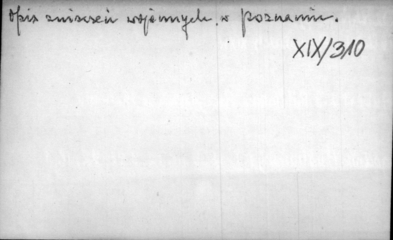 Opis zniszczeń wojennych w Poznaniu.
XIX/310